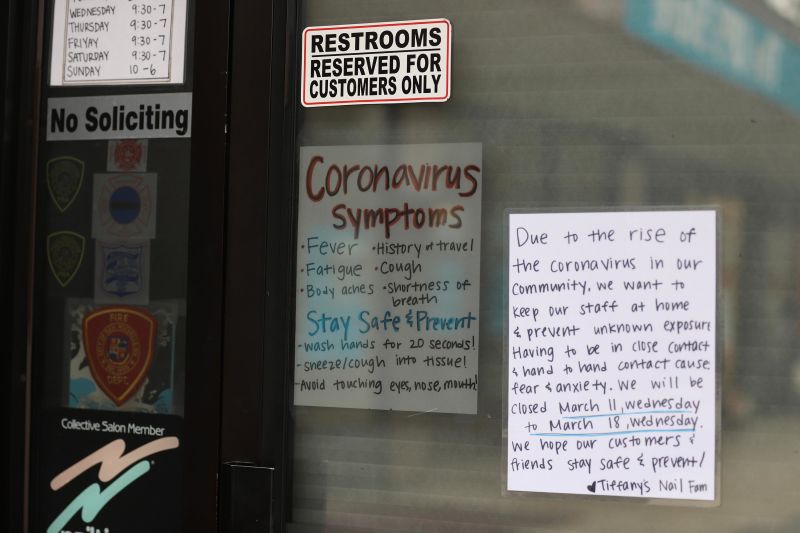 WEDNESDAY 9:30-7
THURSDAY 9:30-7
FRIYAY 9:30-7
SATURDAY 9:30-7
SUNDAY 10-6
No Soliciting
FIRE
DEPT.
Collective Salon Member
RESTROOMS
RESERVED FOR
CUSTOMERS ONLY
Coronavirus
Symptoms
• Fever • History of travel
• Fatigue • Cough
• Body aches • Shortness of
breath
Stay Safe & Prevent
- wash hands for 20 seconds!
- sneeze/cough into tissue!
- Avoid touching eyes, nose, mouth!
Due to the rise of
the coronavirus in our
community, we want to
keep our staff at home
& prevent unknown exposure
Having to be in close contact
& hand to hand contact cause
fear & anxiety. We will be
closed March 11, wednesday
to March 18, wednesday.
We hope our customers &
friends stay safe & prevent!
♥ Tiffany's Nail Fam